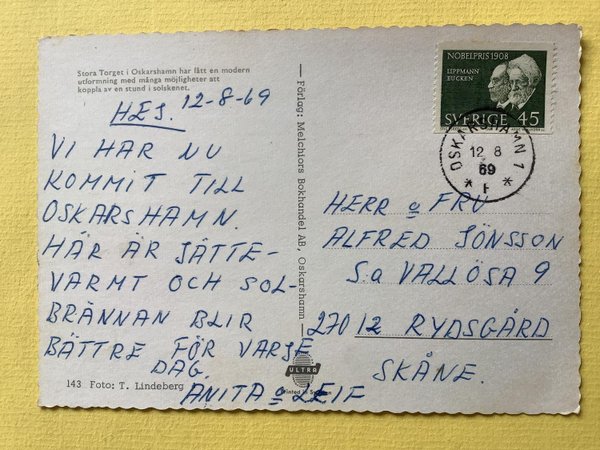 Stora Torget i Oskarshamn har fått en modern
utformning med många möjligheter att
koppla av en stund i solskenet.
HEJ. 12-8-69
VI HAR NU
KOMMIT TILL
OSKARSHAMN.
HÄR ÄR JÄTTE-
VARMT OCH SOL-
BRÄNNAN BLIR
BÄTTRE FÖR VARJE
DAG.
ANITA o LEIF
143 Foto: T. Lindeberg
— Förlag: Melchiors Bokhandel AB, Oskarshamn —
ULTRA
Printed in Sweden
NOBELPRIS 1908
LIPPMANN
EUCKEN
SVERIGE 45
OSKARSHAMN 1
12 8
69
HERR o FRU
ALFRED JÖNSSON
S:a VALLÖSA 9
270 12 RYDSGÅRD
SKÅNE.